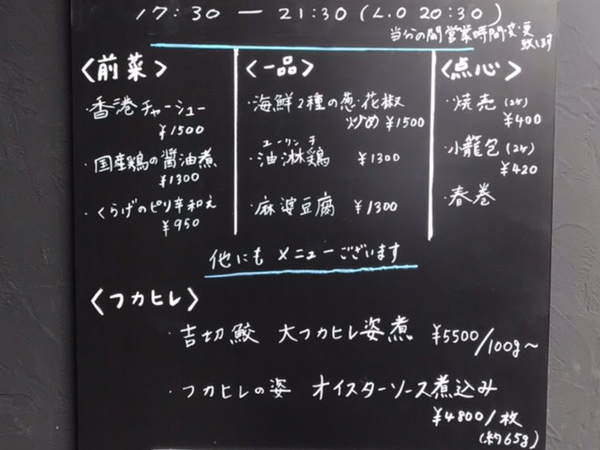 17:30 — 21:30 (L.O 20:30)
当分の間営業時間変更
致します
〈前菜〉
・香港チャーシュー
¥1500
・国産鶏の醤油煮
¥1300
・くらげのピリ辛和え
¥950
〈一品〉
・海鮮2種の葱・花椒
炒め ¥1500
ユーリンチ
・油淋鶏 ¥1300
・麻婆豆腐 ¥1300
〈点心〉
・焼売(2ヶ)
¥400
・小籠包(2ヶ)
¥420
・春巻
他にもメニューございます
〈フカヒレ〉
・吉切鮫 大フカヒレ姿煮 ¥5500/100g〜
・フカヒレの姿 オイスターソース煮込み
¥4800/枚
(約65g)